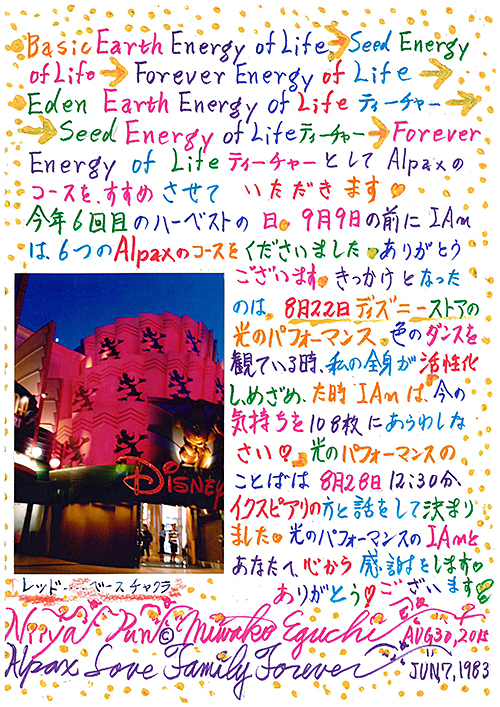 Basic Earth Energy of Life → Seed Energy
of Life → Forever Energy of Life →
Eden Earth Energy of Life ティーチャー
→ Seed Energy of Life ティーチャー → Forever
Energy of Life ティーチャーとして Alpaxの
コースを、すすめ させて いただき ます
今年6回目のハーベストの 日。9月9日の前に IAm
は、6つのAlpaxのコースをくださいました。ありがとう
ございます。きっかけとなった
のは、8月22日ディズニーストアの
光のパフォーマンス、色のダンスを
観ている時、私の全身が活性化
し、めざめ、た時 IAm は、今の
気持ちを108枚にあらわしな
さい♡。光のパフォーマンスの
ことばは 8月28日 12:30分、
イクスピアリの方と話をして決まり
ました♡光のパフォーマンスのIAmと
あなたへ、心から 感謝をします♡
ありがとう♡ございます
DISNEY
レッド ベースチャクラ
© Miwako Eguchi AUG30, 2015
Alpax Love Family Forever JUN,7,1983